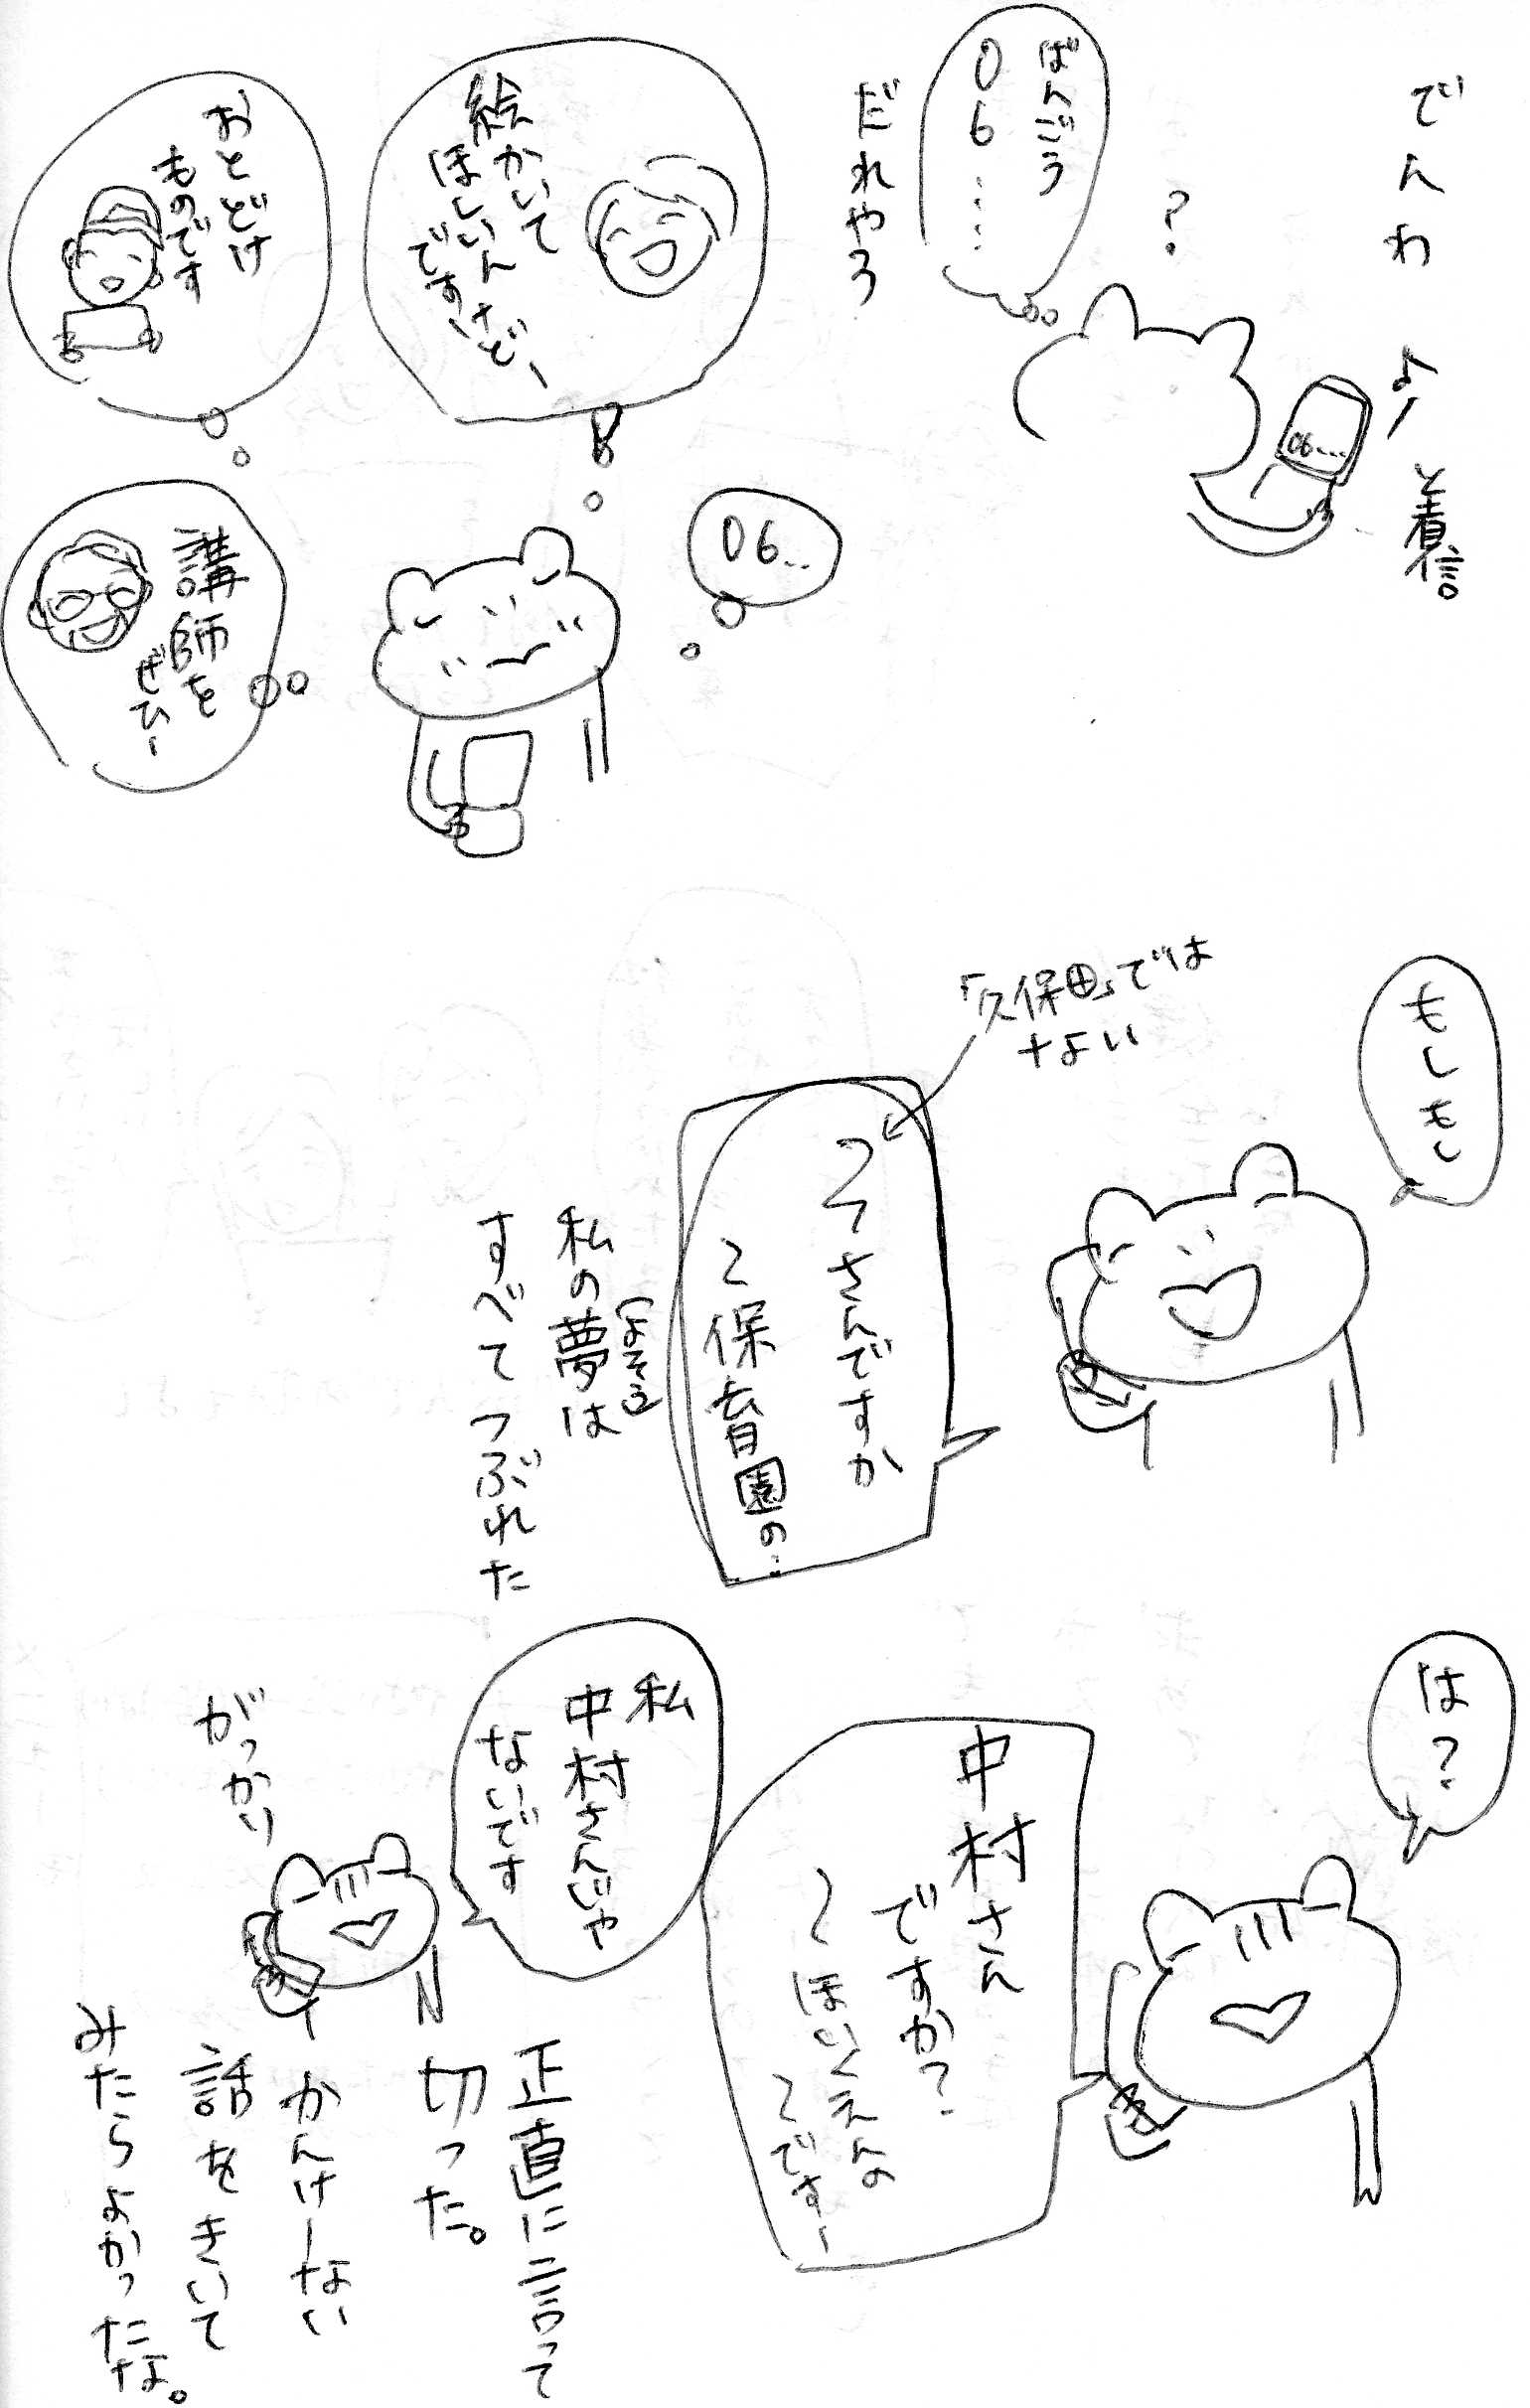 でんわ ♪ と着信。
?
ばんごう
06……
06…
だれやろ
06…
絵かいて
ほしいんけど
ですー
おとどけ
ものです
講師を
ぜひー
もしもし
「久保田」では
ない
さんですか
保育園の…
私の夢は
(よそう)
すべてつぶれた
は?
中村さん
ですか?
ほいくえんの
ですー
私
中村さんじゃ
ないです
がっかり
正直に言って
切った。
かんけーない
話をきいて
みたらよかったな。